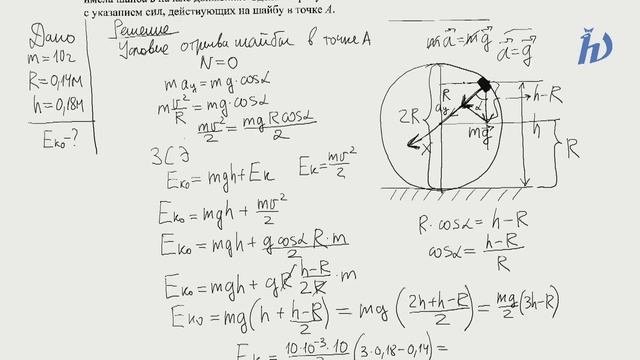 имела шайба в начале движения
с указанием сил, действующих на шайбу в точке А.
Дано
m=10г
R=0,14м
h=0,18м
Eк₀-?
Решение
Условие отрыва шайбы в точке А
N=0
m aц = mg·cosα
m v²/R = mg·cosα
mv²/2 = mgRcosα/2
ЗСЭ
Eк₀ = mgh+Eк   Eк = mv²/2
Eк₀ = mgh + mv²/2
Eк₀ = mgh + g cosα R·m/2
Eк₀ = mgh + gR (h-R)/2R · m
Eк₀ = mg(h + (h-R)/2) = mg ((2h+h-R)/2) = mg/2 (3h-R)
Eк₀ = 10·10⁻³·10/2 (3·0,18-0,14) =
ma⃗=mg⃗
a⃗=g⃗
2R
R
aц
α
mg⃗
X
h-R
h
R
R·cosα = h-R
cosα = (h-R)/R